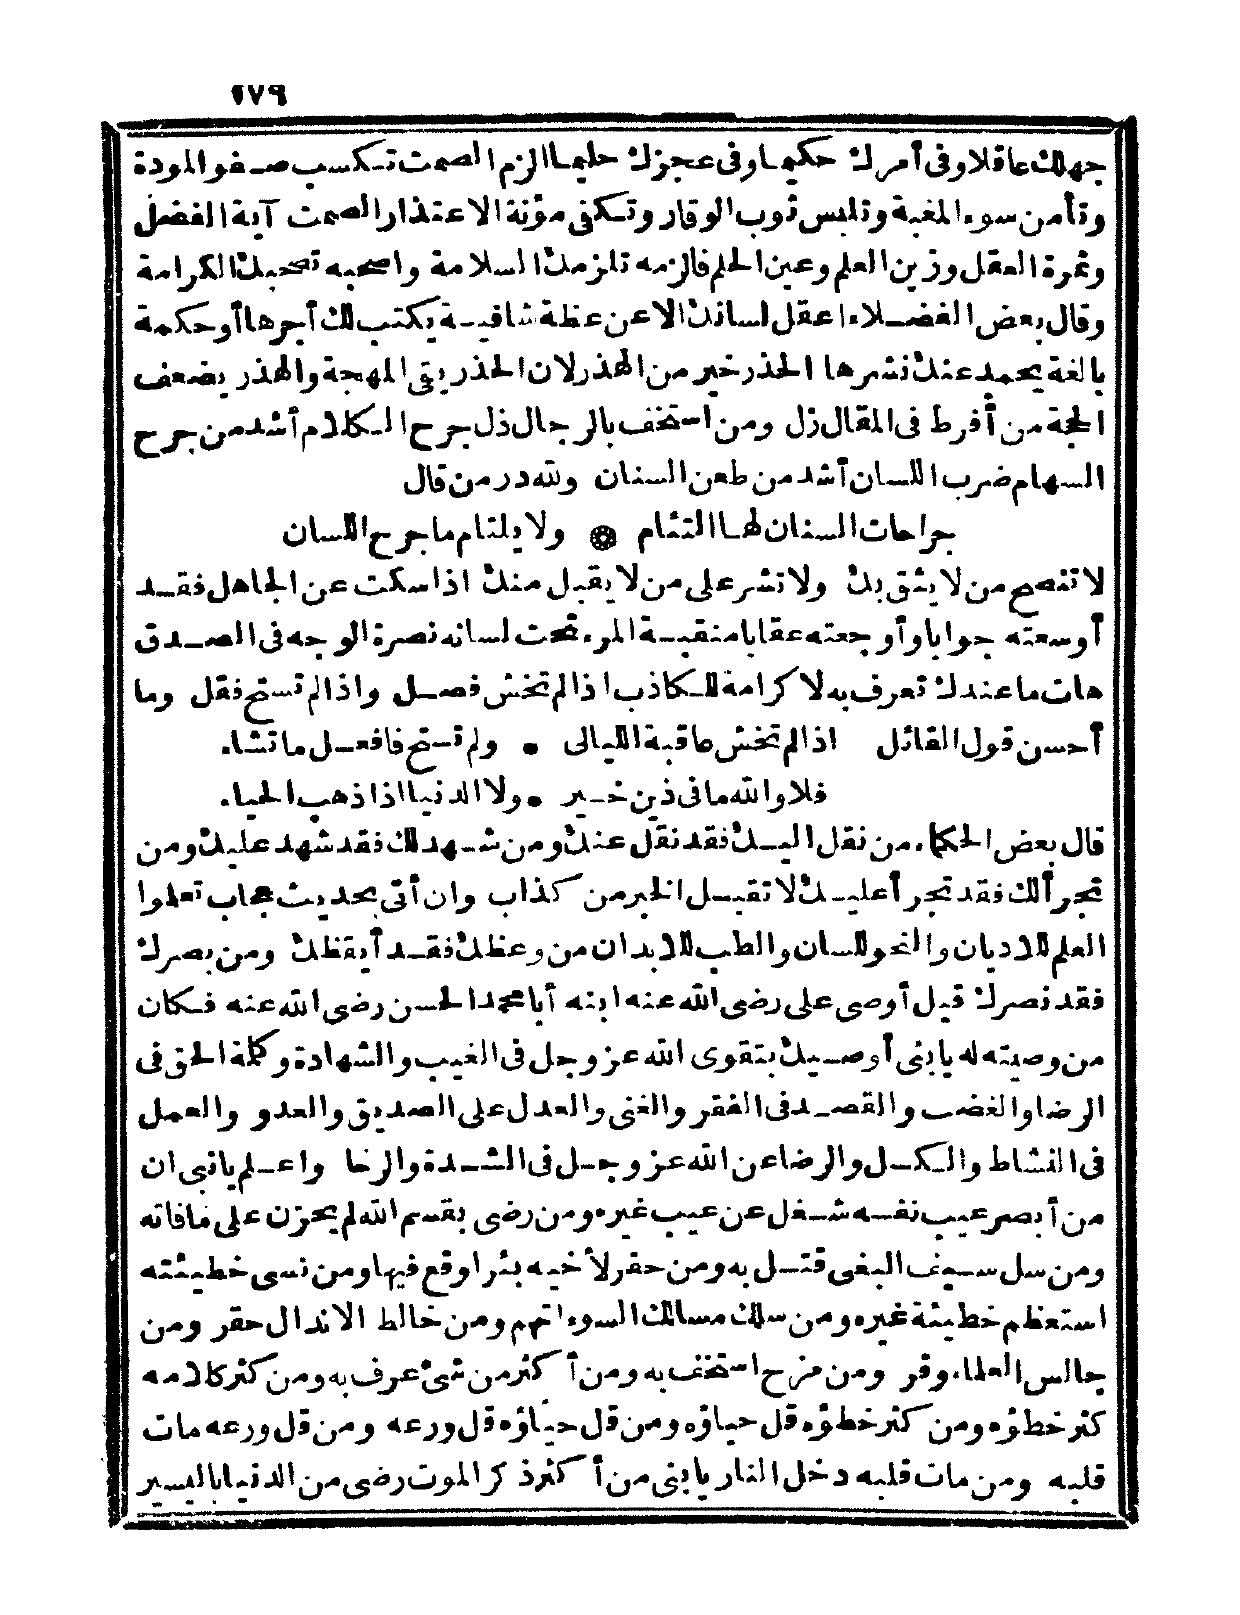 ١٧٩
جهلك عاقلا وفى أمرك حكيما وفى عجزك حليما الزم الصمت تكسب صفو المودة
وتأمن سوء المغبة وتلبس ثوب الوقار وتكفى مؤنة الاعتذار الصمت آية الفضل
وثمرة العقل وزين العلم وعين الحلم فالزمه تلزمك السلامة واصحبه تصحبك الكرامة
وقال بعض الفضلاء اعقل لسانك الا عن عظة شافية يكتب لك أجرها أو حكمة
بالغة يحمد عنك نشرها الحذر خير من الهذر لان الحذر يقى المهجة والهذر يضعف
الحجة من أفرط فى المقال زل ومن استخف بالرجال ذل جرح الكلام أشد من جرح
السهام ضرب اللسان أشد من طعن السنان ولله در من قال
جراحات السنان لها التئام ۞ ولا يلتام ما جرح اللسان
لا تنصح من لا يثق بك ولا تشر على من لا يقبل منك اذا سكت عن الجاهل فقد
أوسعته جوابا وأوجعته عقابا منقبة المرء تحت لسانه نصرة الوجه فى الصدق
هات ما عندك تعرف به لا كرامة للكاذب اذا لم تخش فصل واذا لم تستح فقل وما
أحسن قول القائل اذا لم تخش عاقبة الليالى • ولم تستح فافعل ما تشاء
فلا والله ما فى ذين خير • ولا الدنيا اذا ذهب الحياء
قال بعض الحكماء من نقل اليك فقد نقل عنك ومن شهد لك فقد شهد عليك ومن
تجرأ لك فقد تجرأ عليك لا تقبل الخبر من كذاب وان أتى بحديث عجاب تعلموا
العلم للاديان والنحو للسان والطب للابدان من وعظك فقد أيقظك ومن بصرك
فقد نصرك قيل أوصى على رضى الله عنه ابنه أبا محمد الحسن رضى الله عنه فكان
من وصيته له يا بنى أوصيك بتقوى الله عز وجل فى الغيب والشهادة وكلمة الحق فى
الرضا والغضب والقصد فى الفقر والغنى والعدل على الصديق والعدو والعمل
فى النشاط والكسل والرضا عن الله عز وجل فى الشدة والرخا واعلم يا بنى ان
من أبصر عيب نفسه شغل عن عيب غيره ومن رضى بقسم الله لم يحزن على ما فاته
ومن سل سيف البغى قتل به ومن حفر لأخيه بئرا وقع فيها ومن نسى خطيئته
استعظم خطيئة غيره ومن سلك مسالك السوء اتهم ومن خالط الاندال حقر ومن
جالس العلماء وقر ومن مزح استخف به ومن أكثر من شئ عرف به ومن كثر كلامه
كثر خطؤه ومن كثر خطؤه قل حياؤه ومن قل حياؤه قل ورعه ومن قل ورعه مات
قلبه ومن مات قلبه دخل النار يا بنى من أكثر ذكر الموت رضى من الدنيا باليسير